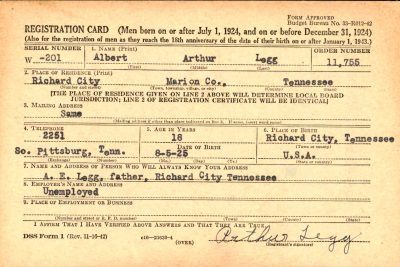 FORM APPROVED
Budget Bureau No. 33-R012-42
REGISTRATION CARD (Men born on or after July 1, 1924, and on or before December 31, 1924)
(Also for the registration of men as they reach the 18th anniversary of the date of their birth on or after January 1, 1943.)
SERIAL NUMBER 1. NAME (Print) ORDER NUMBER
W -201 Albert Arthur Legg 11,755
(First) (Middle) (Last)
2. PLACE OF RESIDENCE (Print)
Richard City Marion Co., Tennessee
(Number and street) (Town, township, village, or city) (County) (State)
[THE PLACE OF RESIDENCE GIVEN ON LINE 2 ABOVE WILL DETERMINE LOCAL BOARD
JURISDICTION; LINE 2 OF REGISTRATION CERTIFICATE WILL BE IDENTICAL]
3. MAILING ADDRESS
Same
4. TELEPHONE 5. AGE IN YEARS 6. PLACE OF BIRTH
2251 18 Richard City, Tennessee
(Town or county)
So. Pittsburg, Tenn. DATE OF BIRTH
8-5-25 U.S.A.
(Exchange) (Number) (Mo.) (Day) (Yr.) (State or country)
7. NAME AND ADDRESS OF PERSON WHO WILL ALWAYS KNOW YOUR ADDRESS
A. E. Legg, father, Richard City Tennessee
8. EMPLOYER'S NAME AND ADDRESS
Unemployed
9. PLACE OF EMPLOYMENT OR BUSINESS
(Number and street or R. F. D. number) (Town) (County) (State)
I AFFIRM THAT I HAVE VERIFIED ABOVE ANSWERS AND THAT THEY ARE TRUE.
DSS Form 1 (Rev. 11-16-42) (OVER) Arthur Legg
(Registrant's signature)